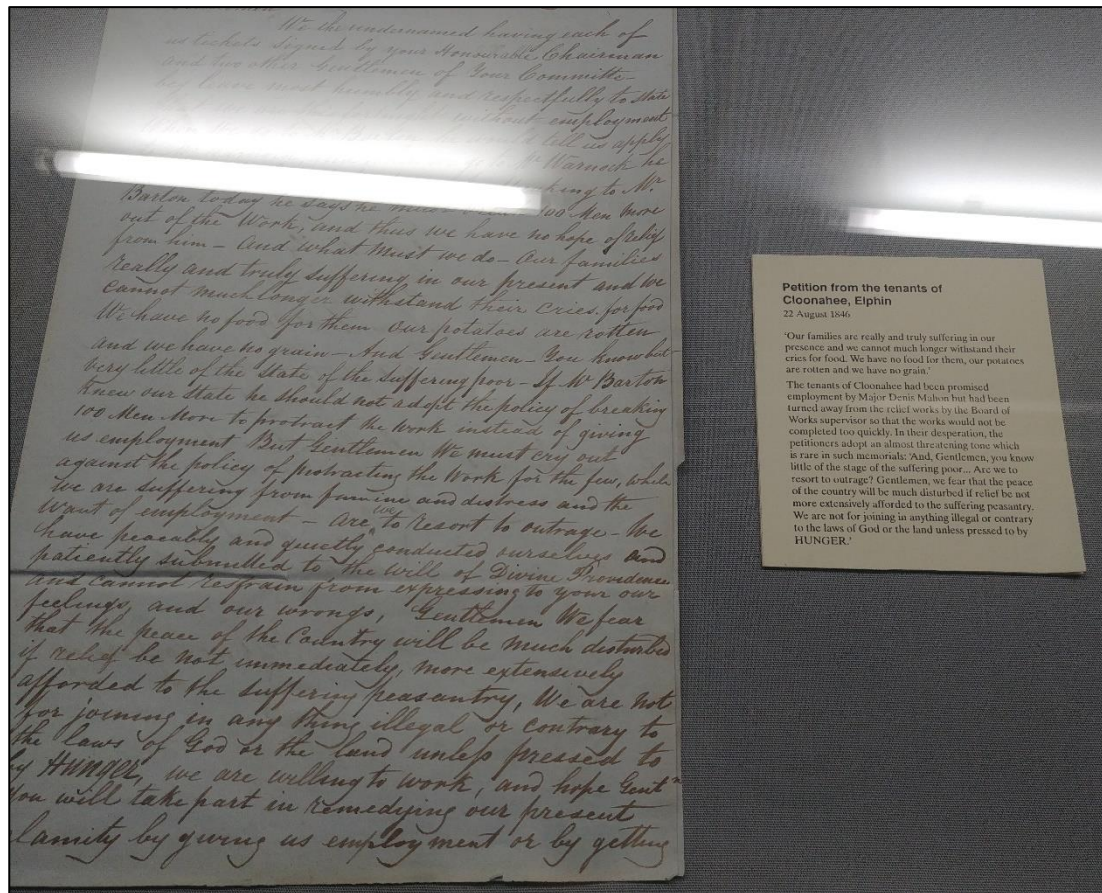 We the undernamed having each of
us tickets signed by your Honourable Chairman
and two other Gentlemen of Your Committe
beg leave most humbly and respectfully to state
without employment
tell us apply
to Mr Warnock he
to Mr
Barton today he says he 100 Men More
out of the Work, and thus we have no hope of relief
from him – And what must we do – Our families
really and truly suffering in our present and we
cannot much longer withstand their cries for food
We have no food for them our potatoes are rotten
and we have no grain – And Gentlemen – You know but
very little of the State of the suffering poor – If Mr Barton
Knew our State he should not adopt the policy of breaking
100 Men More to protract the Work instead of giving
us employment But Gentlemen We must cry out
against the policy of protracting the Work for the few, while
we are suffering from famine and distress and the
Want of employment – Are we to resort to outrage – We
have peacably and quietly conducted ourselves and
patiently submitted to the will of Divine Providence
and cannot resfrain from expressing to your our
feelings, and our wrongs, Gentlemen We fear
that the peace of the Country will be much disturbed
if relief be not immediately, more extensively
afforded to the suffering peasantry, We are not
for joining in any thing illegal or contrary to
the laws of God or the land unless pressed to
by Hunger, we are willing to work, and hope Gentn
You will take part in remedying our present
lamity by giving us employment or by getting
Petition from the tenants of
Cloonahee, Elphin
22 August 1846
'Our families are really and truly suffering in our
presence and we cannot much longer withstand their
cries for food. We have no food for them, our potatoes
are rotten and we have no grain.'
The tenants of Cloonahee had been promised
employment by Major Denis Mahon but had been
turned away from the relief works by the Board of
Works supervisor so that the works would not be
completed too quickly. In their desperation, the
petitioners adopt an almost threatening tone which
is rare in such memorials: 'And, Gentlemen, you know
little of the stage of the suffering poor... Are we to
resort to outrage? Gentlemen, we fear that the peace
of the country will be much disturbed if relief be not
more extensively afforded to the suffering peasantry.
We are not for joining in anything illegal or contrary
to the laws of God or the land unless pressed to by
HUNGER.'